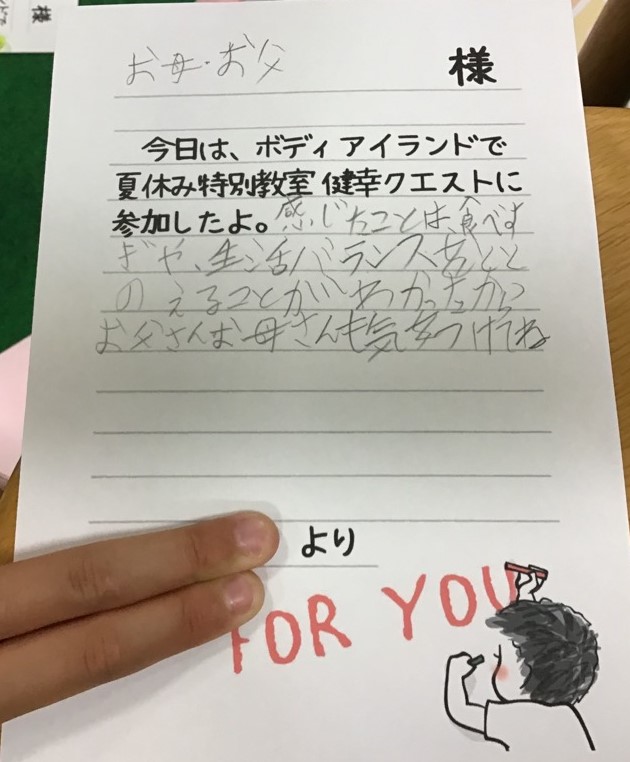 様
お母・お父 様
今日は、ボディアイランドで
夏休み特別教室 健幸クエストに
参加したよ。感じたことは、食べす
ぎや、生活バランスをとと
のえることがわかったから
お父さんお母さんも気をつけてね
より
FOR YOU